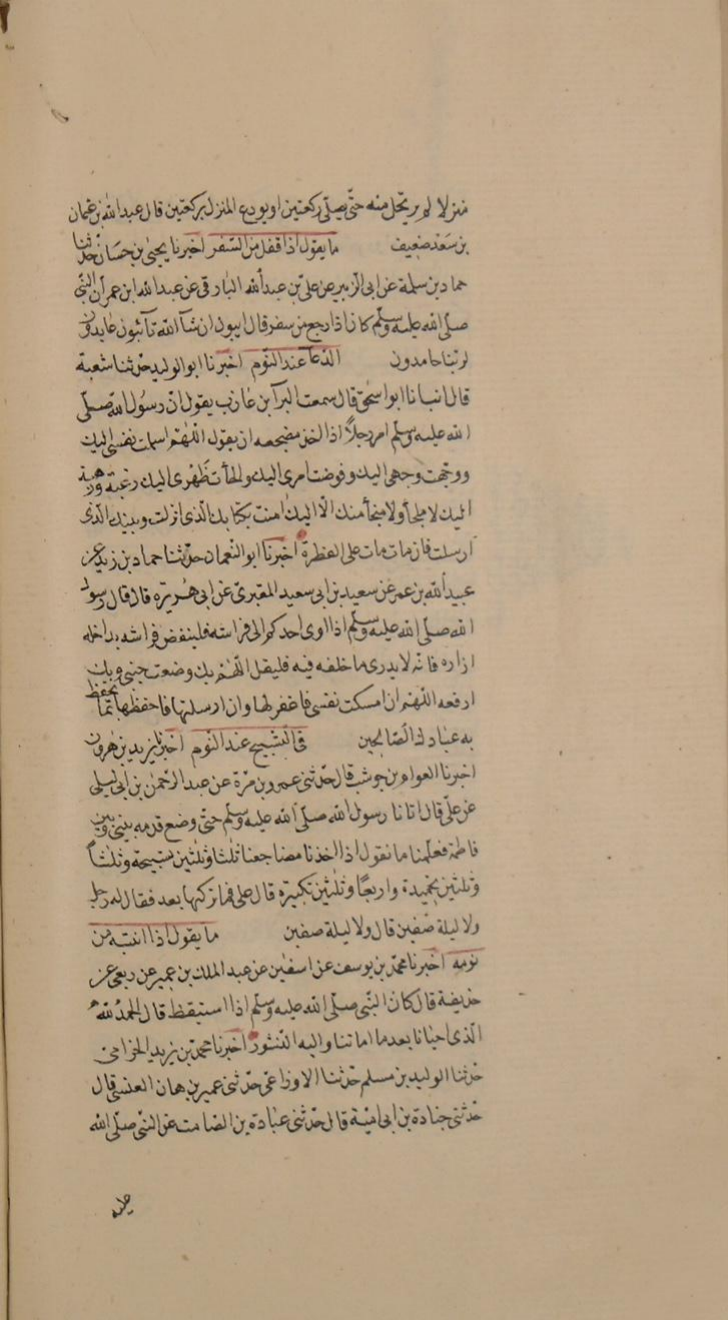 منزلا لم يرتحل منه حتى يصلي ركعتين او يودع المنزل بركعتين قال عبد الله عثمان
بن سعد ضعيف ما يقول اذا قفل من السفر اخبرنا يحيى بن حسان حدثنا
حماد بن سلمة عن ابى الزبير عن على بن عبد الله البارقى عن عبد الله ابن عمر ان النبى
صلى الله عليه وسلم كان اذا رجع من سفر قال ايبون ان شآ الله تآئبون عابدون
لربنا حامدون الدعآ عند النوم اخبرنا ابو الوليد حدثنا شعبة
قال انبانا ابو اسحق قال سمعت البرآ بن عازب يقول ان رسول الله صلى
الله عليه وسلم امر رجلاً اذا اخذ مضجعه ان يقول اللهم اسلمت نفسى اليك
ووجهت وجهى اليك وفوضت امرى اليك والجأت ظهرى اليك رغبة ورهبة
اليك لا ملجأ ولا منجأ منك الا اليك امنت بكتابك الذى انزلت ونبيك الذى
ارسلت فان مات مات على الفطرة اخبرنا ابو النعمان حدثنا حماد بن زيد عن
عبيد الله بن عمر عن سعيد بن ابى سعيد المقبرى عن ابى هريرة قال قال رسول
الله صلى الله عليه وسلم اذا اوى احدكم الى فراشه فلينفض فراشه بداخله
ازاره فانه لا يدرى ما خلفه فيه فليقل اللهم بك وضعت جنبى وبك
ارفعه اللهم ان امسكت نفسى فاغفر لها وان ارسلتها فاحفظها بما تحفظ
به عبادك الصالحين فى التسبيح عند النوم اخبرنا يزيد بن هرون
اخبرنا العوام بن حوشب قال حدثنى عمرو بن مرة عن عبد الرحمن بن ابى ليلى
عن على قال اتانا رسول الله صلى الله عليه وسلم حتى وضع قدمه بينى وبين
فاطمة فعلمنا ما نقول اذا اخذنا مضاجعنا ثلثا وثلثين تسبيحة وثلثاً
وثلثين تحميدة واربعاً وثلثين تكبيرة قال على فما تركتها بعد فقال له رجل
ولا ليلة صفين قال ولا ليلة صفين ما يقول اذا انتبه من
نومه اخبرنا محمد بن يوسف عن اسفين عن عبد الملك بن عمير عن ربعى عن
حذيفة قال كان النبى صلى الله عليه وسلم اذا استيقظ قال الحمد لله
الذى احيانا بعد ما اماتنا واليه النشور اخبرنا محمد بن يزيد الحزامى
حدثنا الوليد بن مسلم حدثنا الاوزاعى حدثنى عمير بن هان العنسى قال
حدثنى جنادة بن ابى امية قال حدثنى عبادة بن الصامت عن النبى صلى الله
عليه